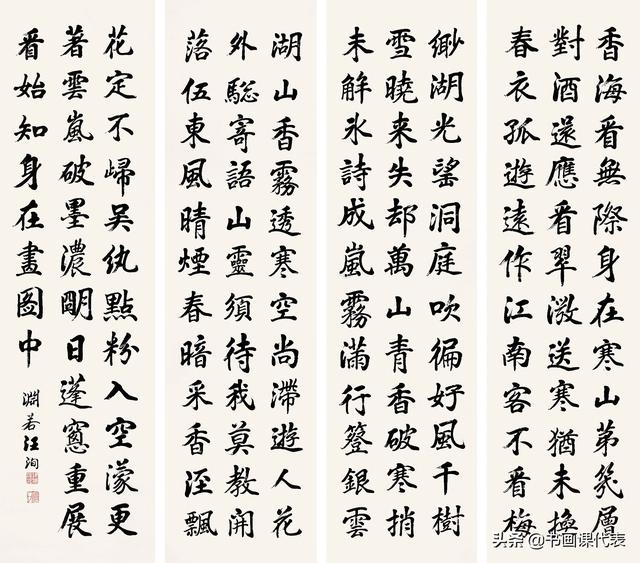 香海看無際身在寒山第幾層
對酒還應看翠微送寒猶未換
春衣孤遊遠作江南客不看梅
緲湖光望洞庭吹徧好風千樹
雪曉来失却萬山青香破寒捎
未解氷詩成嵐霧滿行簦銀雲
湖山香霧透寒空尚滯遊人花
外驄寄語山靈須待我莫教開
落伍東風晴煙春暗采香涇飄
花定不歸吳紈點粉入空濛更
著雲嵐破墨濃明日蓬窻重展
看始知身在畫圖中
淵若汪洵
头条 @书画课代表